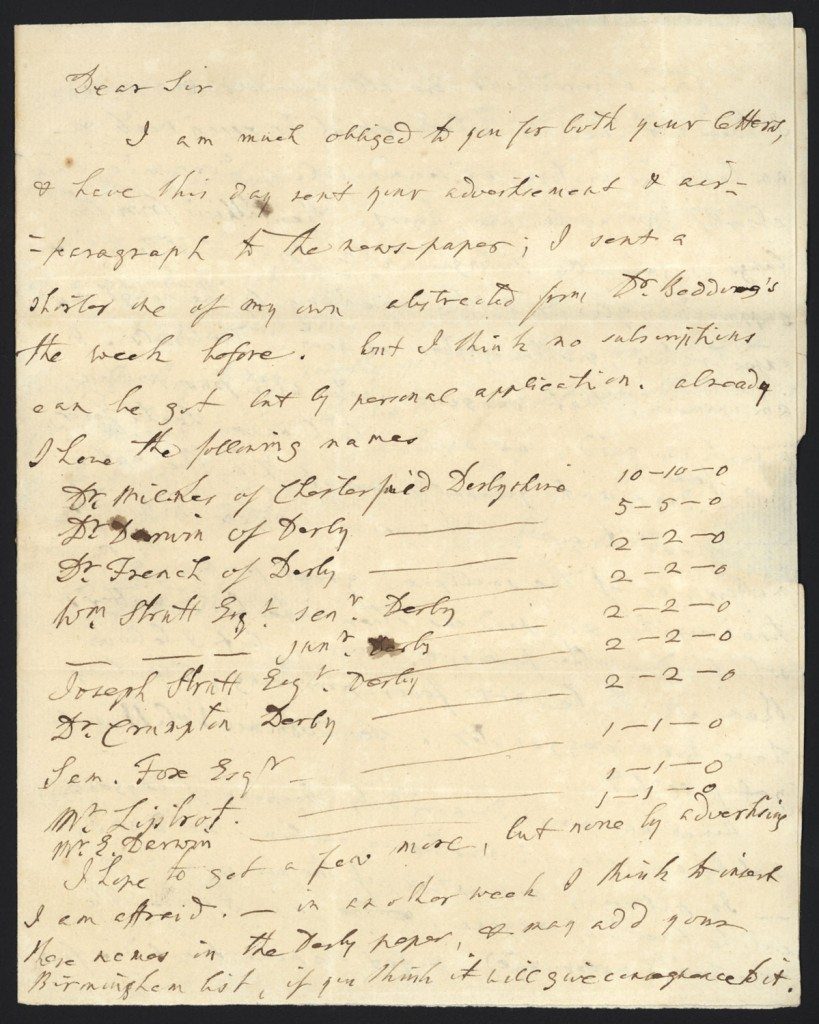 Dear Sir
I am much obliged to you for both your letters,
& have this day sent your advertisement & air=
=paragraph to the news-paper; I sent a
shorter one of my own abstracted from Dr. Beddoes's
the week before. but I think no subscriptions
can be got but by personal application. already
I have the following names
Dr. Milnes of Chesterfield Derbyshire 10-10-0
Dr. Darwin of Derby —— 5-5-0
Dr. French of Derby —— 2-2-0
Wm. Strutt Esqr. senr. Derby 2-2-0
— — — junr. Derby 2-2-0
Joseph Strutt Esqr. Derby 2-2-0
Dr. Crumpton Derby —— 2-2-0
Sam. Fox Esqr —— 1-1-0
Mr. —— 1-1-0
Mr. E. Darwin —— 1-1-0
I hope to get a few more, but none by advertising
I am affraid. — in another week I think to insert
these names in the Derby paper, & may add your
Birmingham list, if you think it will give consequence to it.